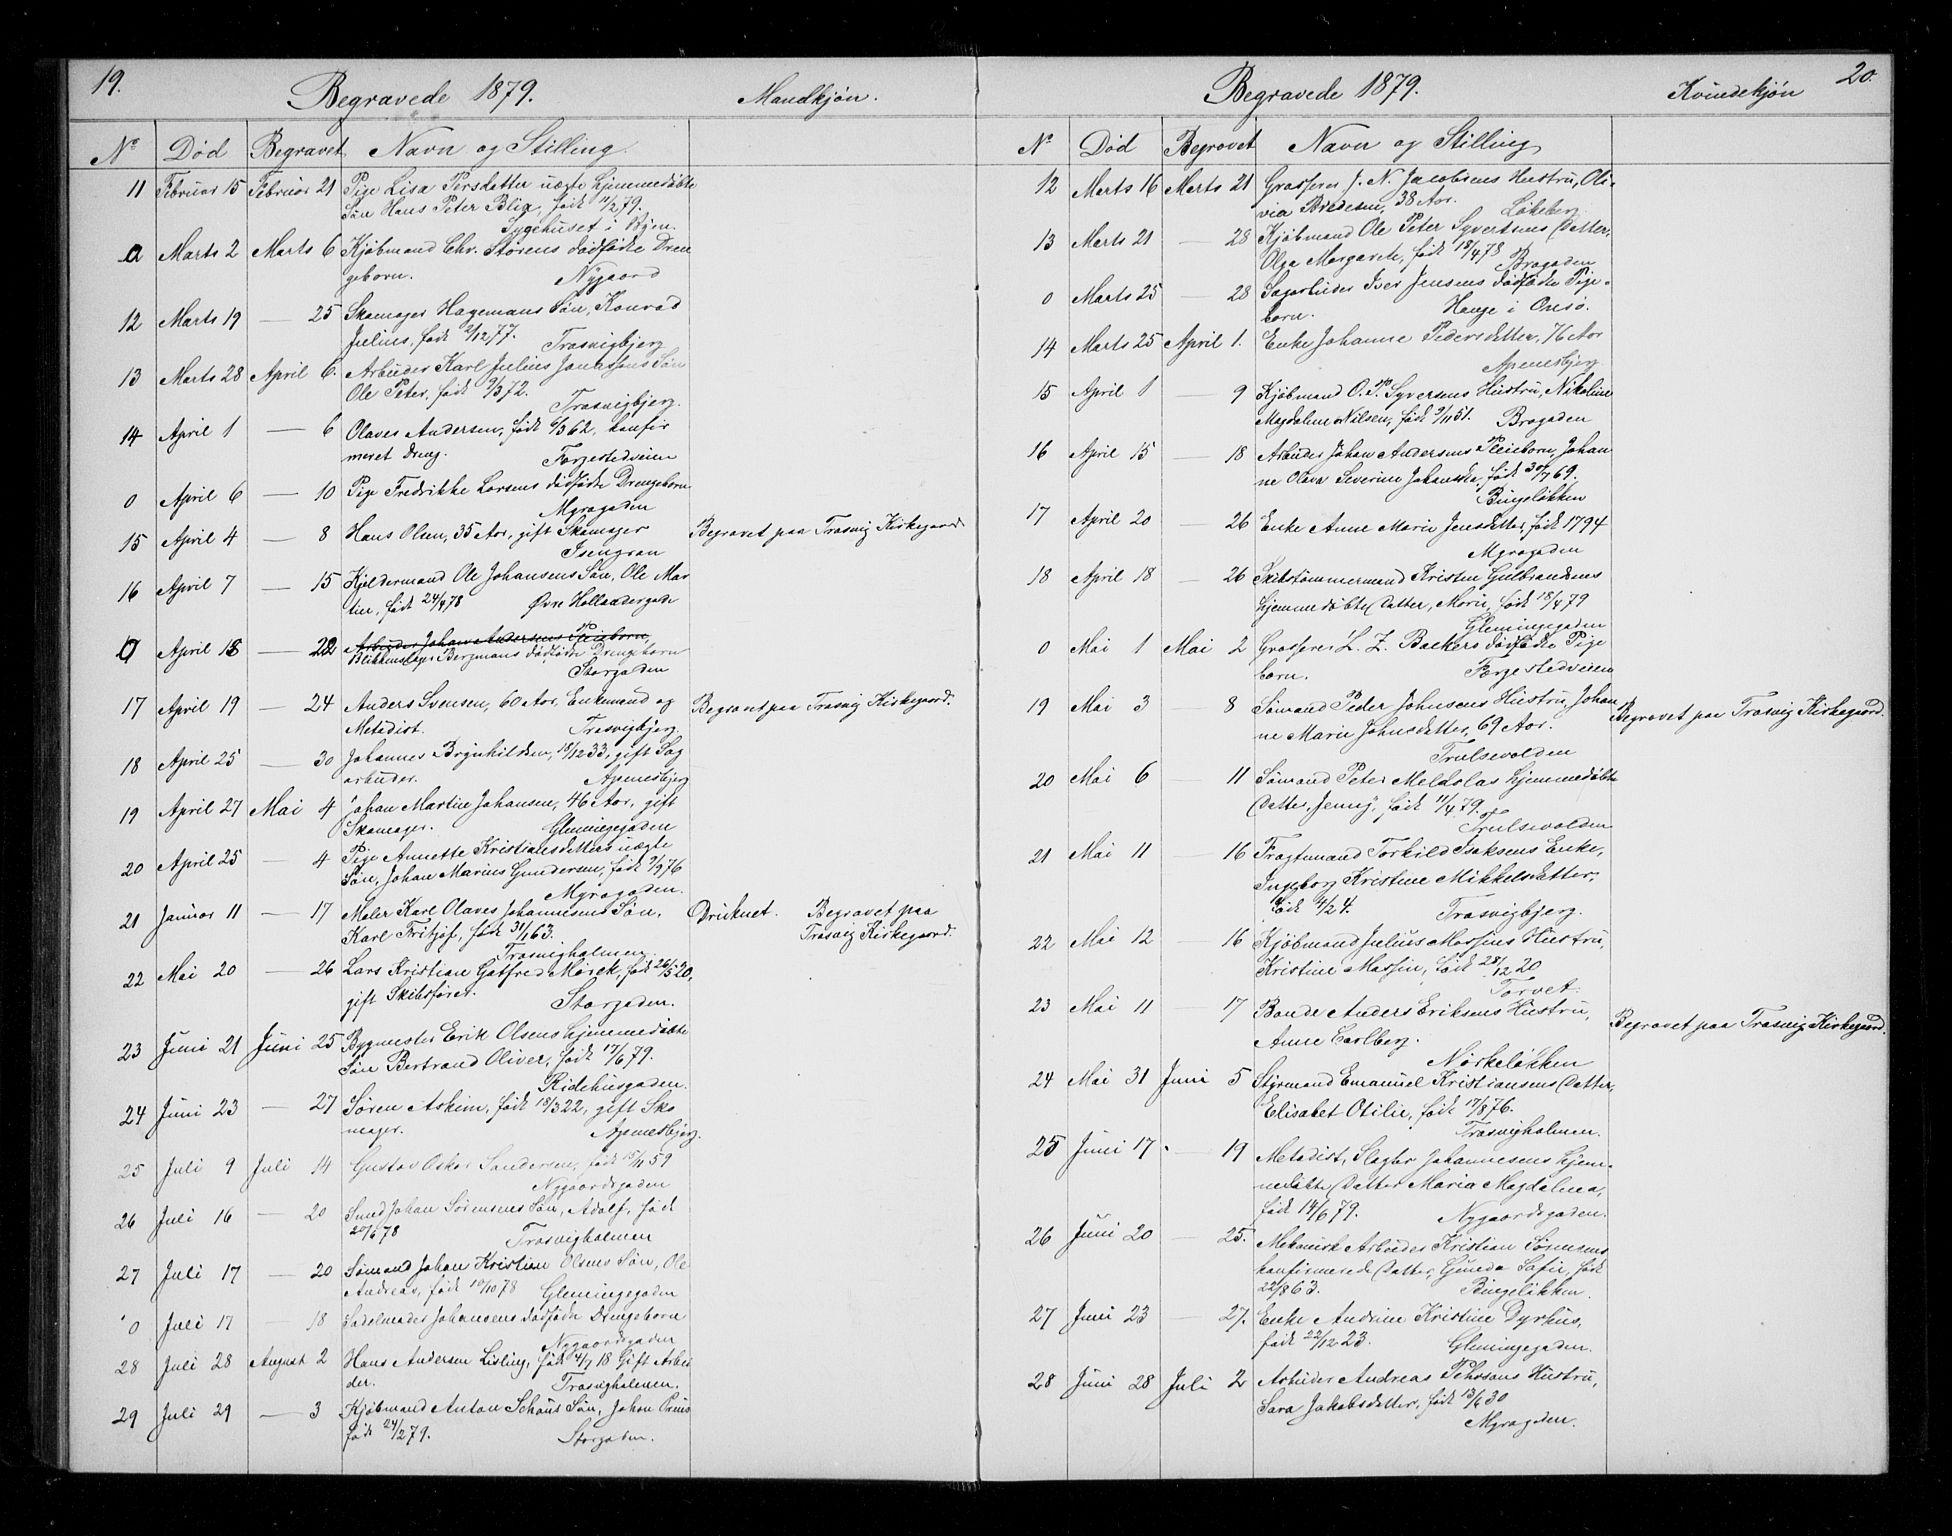 19.
Begravede 1879.
Mandkjøn.
No Død Begravet Navn og Stilling.
11 Februar 15 Februar 21 Pige Lisa Persdatter uægte hjemmedøbte
Søn Hans Peter Blix, født 11/2 79.
Sygehuset i Byen.
0 Marts 2 Marts 6 Kjøbmand Chr. Størens dødfødte Dren
gebarn. Nygaard
12 Marts 19 — 25 Skomager Hagemans Søn, Konrad
Julius, født 2/12 77. Trosvigbjerg
13 Marts 28 April 6. Arbeider Karl Julius Søn
Ole Peter, født 9/3 72. Trosvigbjerg.
14 April 1 — 6 Olaves Andersen, født 6/3 62, konfir
meret Dreng. Færjestedveien
0 April 6 — 10 Pige Fredrikke Larsens dødfødte Drengebarn
Myragaden
15 April 4 — 8 Hans Olsen, 35 Aar, gift Skomager Begravet paa Trosvig Kirkegaard
Isengran
16 April 7 — 15 Kjeldermand Ole Johansens Søn, Ole Mar
tin, født 24/4 78 Øvre Hollændergade
0 April 18 — 22 Arbeider Johan Andersens Pleiebarn,
Blikkenslager Bergmans dødfødte Drengebarn
Storgaden
17 April 19 — 24 Anders Svensen, 60 Aar, Enkemand og Begravet paa Trosvig Kirkegaard.
Metodist. Trosvigbjerg
18 April 25 — 30 Johannes Brynhildsen, 18/12 33, gift Sag
arbeider. Apenesbjerg
19 April 27 Mai 4 Johan Martin Johansen, 46 Aar, gift
Skomager. Glemmegaden
20 April 25 — 4 Pige Annette Kristiansdatters uægte
Søn, Johan Marius Gundersen, født 9/9 76
Myragaden.
21 Januar 11 — 17 Maler Karl Olaves Johannesens Søn, Druknet. Begravet paa
Karl Fritjof, født 31/1 63. Trosvig Kirkegaard.
Trosvigholmen
22 Mai 20 — 26 Lars Kristian Gotfred Mørck, født 26/5 20,
gift Skibsfører. Storgaden.
23 Juni 21 Juni 25 Bygmester Erik Olsens hjemmedøbte
Søn Bertrand Oliver, født 17/6 79.
Ridehusgaden.
24 Juni 23 — 27 Søren Askim, født 18/3 22, gift Sko
mager. Apenesbjerg.
25 Juli 9 Juli 14 Gustav Oskar Sandersen, født 15/11 59
Nygaardsgaden
26 Juli 16 — 20 Smed Johan Sørensens Søn, Adolf, født
20/6 78 Trosvigholmen
27 Juli 17 — 20 Sømand Johan Kristian Olsens Søn, Ole
Andreas, født 10/10 78 Glemmegaden
0 Juli 17 — 18 Sadelmager Johansens dødfødte Drengebarn
Nygaardsgaden
28 Juli 28 August 2 Hans Andersen Lisling, født 4/7 18 Gift Arbei
der. Trosvigholmen.
29 Juli 29 — 3 Kjøbmand Anton Schous Søn, Johan
født 24/2 79. Storgaden.
20.
Begravede 1879.
Kvindekjøn
No Død Begravet Navn og Stilling
12 Marts 16 Marts 21 Grosserer J. N. Jacobsens Hustru, Oli-
via Bredesen, 38 Aar. Løkeberg.
13 Marts 21 — 28 Kjøbmand Ole Peter Syvertsens Datter,
Olga Margarete, født 18/4 78 Brogaden
0 Marts 25 — 28 Sagarbeider Iver Jensens dødfødte Pige-
barn. Hauge i Onsø.
14 Marts 25 April 1. Enke Johanne Pedersdatter, 76 Aar
Apenesbjerg
15 April 1 — 9 Kjøbmand O. P. Syversens Hustru, Nikoline
Magdaline Nilsen, født 9/11 51. Brogaden
16 April 15 — 18 Arbeider Johan Andersens Pleiebarn, Johan
ne Olava Severine Johansdtr, født 30/7 69.
Bingeløkken
17 April 20 — 26 Enke Anne Marie Jensdatter, født 1794
Myragaden
18 April 18 — 26 Skibstømmermand Kristen Gulbrandsens
hjemmedøbte Datter, Marie, født 18/4 79
Glemmegaden
0 Mai 1 Mai 2 Grosserer L. Z. Backers dødfødte Pige
barn. Færjestedveien
19 Mai 3 — 8 Sømand Peder Johnsens Hustru, Johan Begravet paa Trosvig Kirkegaard.
ne Marie Johnsdatter, 69 Aar.
Trulsevolden
20 Mai 6 — 11 Sømand Peter Meldolas hjemmedøbte
Datter, Jenny, født 11/4 79.
Trulsevolden
21 Mai 11 — 16 Fragtemand Torkild Isaksens Enke,
Ingeborg Kristine Mikkelsdatter,
født 4/1 24. Trosvigbjerg.
22 Mai 12 — 16 Kjøbmand Julius Massins Hustru,
Kristine Massin, født 28/12 20
Torvet.
23 Mai 11 — 17 Bonde Anders Eriksens Hustru, Begravet paa Trosvig Kirkegaard.
Anne Carlberg.
Norkeløkken
24 Mai 31 Juni 5 Styrmand Emanuel Kristiansens Datter,
Elisabet Otilie, født 17/8 76.
Trosvigholmen.
25 Juni 17 — 19 Metodist, Slagter Johannesens hjem-
medøbte Datter Maria Magdalena,
født 14/6 79. Nygaardsgaden.
26 Juni 20 — 25. Mekanisk Arbeider Kristian Sørensens
konfirmerede Datter, Gunda Sofie, født
22/8 63. Bingeløkken.
27 Juni 23 — 27. Enke Andrine Kristine Dyrhus,
født 22/12 23. Glemmegaden.
28 Juni 28 Juli 2 Arbeider Andreas Pehrsons Hustru,
Sara Jakobsdatter, født 13/6 30
Myragaden.